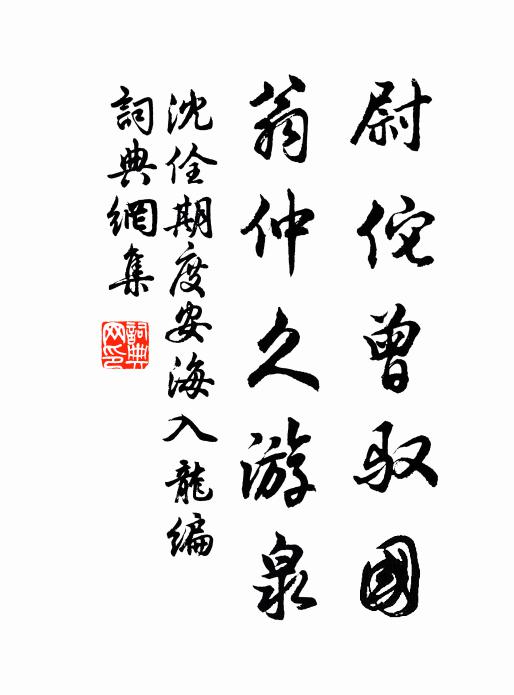 尉佗曾驭國
翁仲久游泉
沈佺期度安海入龍编
詞典網集
詞典网印